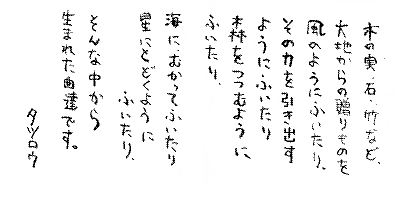 木の実・石・竹など、
大地からの贈りものを
風のようにふいたり、
その力を引き出す
ようにふいたり
森をつつむように、
ふいたり、
海にむかってふいたり
星にとどくように
ふいたり、
そんな中から
生まれた曲達です。
タツロウ